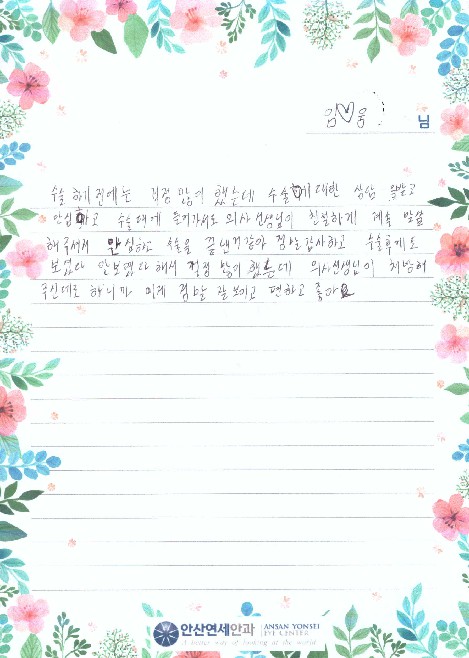 김♡웅 님
수술 하기 전에는 걱정 많이 했는데 수술에 대한 상담 을 받고
안심하고 수술대에 들어가서도 의사선생님이 친절하게 계속 말씀
해주셔서 안심하고 수술을 끝낸거같아 정말감사하고 수술후에도
보였다 안보였다 해서 걱정 많이 했는데 의사선생님이 처방해
주신데로 하니까 이제 정말 잘 보이고 편하고 좋아요
안산연세안과 ANSAN YONSEI
EYE CENTER
A better way of looking at the world